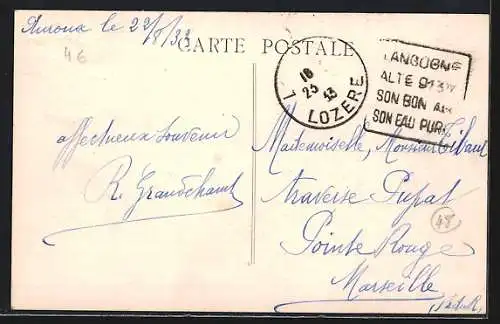 le 22/8/33
CARTE POSTALE
46
LOZERE
16
23
LANGOGNE
ALTE 913M
SON BON AIR
SON EAU PURE
affectueux souvenir
R. Grandchamt
Mademoiselle, Monsieur
traverse Pupat
Pointe Rouge
48
Marseille